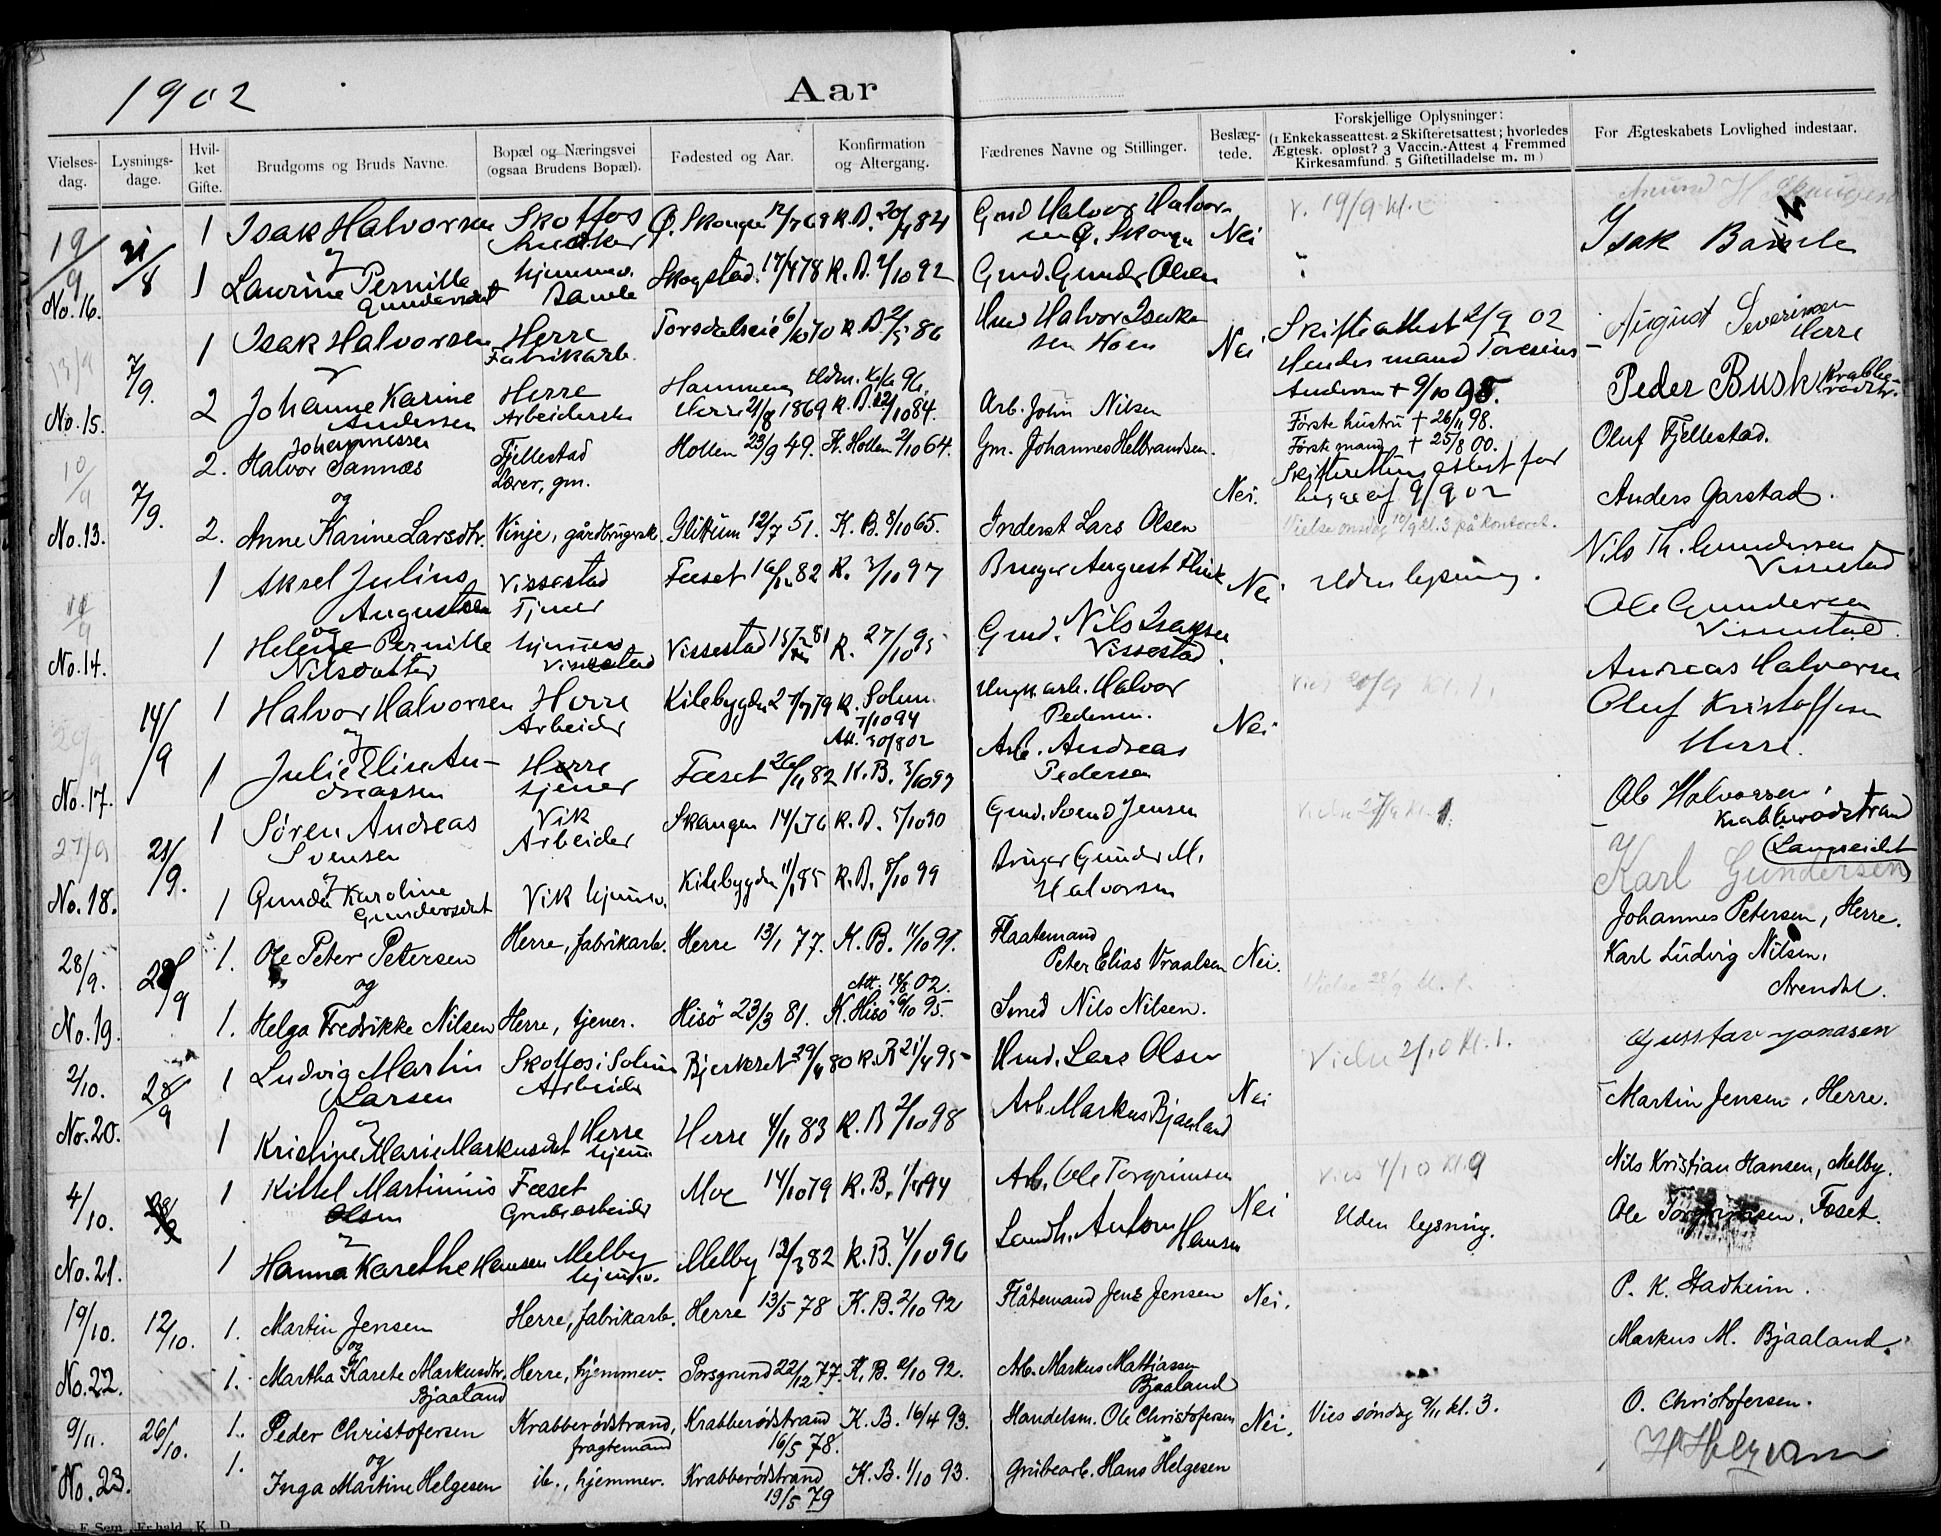 1902
Aar
Vielses-dag. Lysnings-dage. Hvil-ket Gifte. Brudgoms og Bruds Navne. Bopæl og Næringsvei (ogsaa Brudens Bopæl). Fødested og Aar. Konfirmation og Altergang. Fædrenes Navne og Stillinger. Beslæg-tede. Forskjellige Oplysninger: (1 Enkekasseattest. 2 Skifteretsattest; hvorledes Ægtesk. opløst? 3 Vaccin.-Attest 4 Fremmed Kirkesamfund. 5 Giftetilladelse m. m.) For Ægteskabets Lovlighed indestaar.
19/9 31/8 1 Isak Halvorsen Skotfos Ø. Skougen K. B. 20/4 84 Gmd Halvor Halvor-
sen Ø. Skougen Nei V. 19/9 kl. Isak Bamle
og
No. 16. 1 Laurine Pernille Gundersdat hjemmev. Bamle Skogstad 17/4 78 K. B. 2/10 92 Gmd. Gunder Olsen
13/9 7/9. 1 Isak Halvorsen Herre Fabrikarb. Torsdalseie 6/10 70 K. B. 2/5 86 Hmd Halvor Isaksen Hoen Nei Skifteattest 2/9 02 August Severinsen Herre
Hendes mand Toresius
Andersen + 9/10 95.
No. 15. 2 Johanne Karine Andersen Herre Arbeiderske Herre 21/8 1869 K. B. 12/10 84. Arb. John Nilsen Peder Busk Krabbe-rødstr.
Første hustru † 26/11 98.
Første mand † 25/8 00.
10/9 7/9. 2. Halvor Johannessen Sannæs Fjellestad Lærer, gm. Hollen 23/9 49. K. Hollen 2/10 64. Gm. Johannes Helbrandsen. Nei. Skifteretten attest for
begge af 9/9 02 Oluf Fjellestad.
og
No. 13. 2. Anne Karine Larsdtr. Vinje, gårdbrugersk. Glittum 12/7 51. K. B. 8/10 65. Inderst Lars Olsen Vielse onsdag 10/9 kl. 3 på kontoret. Anders Garstad.
11/9 1 Aksel Julius Augustsen Vissestad Tjener Fæset 82 K. 3/10 97 Bruger August Flink Nei Uden lysning. Nils Th. Gundersen Vissestad
og
No. 14. 1 Helene Pernille Nilsdatter hjemmev. Vissestad Vissestad 81 K. 27/10 95 Gmd. Nils Isaksen Vissestad. Ole Gundersen Vissestad.
20/9 14/9 1 Halvor Halvorsen Herre Arbeider Kilebygden 79 K. Solum 7/10 94 Att. 30/8 02 Halvor Pedersen. Nei Vies 20/9 kl. 1. Andreas Halvorsen
Oluf Kristoffersen
Herre.
og
No. 17. 1 Julie Elise An-
dreassen Herre tjener Fæset 82 K. B. 3/10 97 Arb. Andreas Pedersen
27/9 21/9. 1 Søren Andreas Svensen Vik Arbeider Skaugen K. B. 5/10 90 Gmd. Svend Jensen Vielse 27/9 kl. 1. Ole Halvorsen, Krabberødstrand
og
No. 18. 1 Gunda Karoline Gundersdat Vik hjemmev. Kilebygden 85 K. B. 8/10 99 Bruger Gunder M. Halvorsen Karl Gundersen Langeidet
28/9. 28/9 1. Ole Peter Petersen Herre, fabrikarb. Herre 13/1 77. K. B. 11/10 91. Flaatemand
Peter Elias Vraalsen Nei. Vielse 28/9 kl. 1. Johannes Petersen, Herre.
og Att. 18/8 02.
No. 19. 1. Helga Fredrikke Nilsen Herre, tjener. Hisö 23/3 81. K. Hisö 6/10 95. Smed Nils Nilsen. Karl Ludvig Nilsen, Arendal.
2/10. 28/9 1 Ludvig Martin Larsen Skotfos i Solum Arbeider Bjerketet 29/4 80 K. B 21/4 95 Hmd. Lars Olsen Nei Vielse 2/10 kl. 1. Gusstav Jonasen
og
No. 20. 1 Kristine Marie Markusdat Herre hjem. Herre 4/11 83 K. B 2/10 98 Arb. Markus Bjaaland Martin Jensen, Herre.
4/10. 1 Kittel Martinius Olsen Fæset Grubearbeider Moe 14/10 79 K. B. 1/4 94 Arb. Ole Torgrimsen Nei Vies 4/10 kl. 9
Uden lysning. Nils Kristian Hansen, Melby.
og
No. 21. 1 Hanna Karethe Hansen Melby hjemmev. Melby 12/3 82 K. B. 4/10 96 Landh. Anton Hansen Ole Torgrimsen, Fæset.
19/10. 12/10. 1. Martin Jensen Herre, fabrikarb. Herre 13/5 78 K. B. 2/10 92 Flåtemand Jens Jensen Nei. P. K. Stadheim.
og
No. 22. 1. Martha Karete Markusdtr. Bjaaland Herre, hjemmev. Porsgrund 22/12 77. K. B. 2/10 92. Arb. Markus Mattiassen Bjaaland Markus M. Bjaaland.
9/11. 26/10. 1. Peder Christofersen Krabberødstrand, fragtemand Krabberødstrand 16/5 78. K. B. 16/4 93. Handelsm. Ole Christofersen Nei. Vies søndag 9/11 kl. 3. O. Christofersen.
og
No. 23. 1. Inga Martine Helgesen ib., hjemmev. Krabberødstrand 19/5 79 K. B. 1/10 93. Grubearb. Hans Helgesen